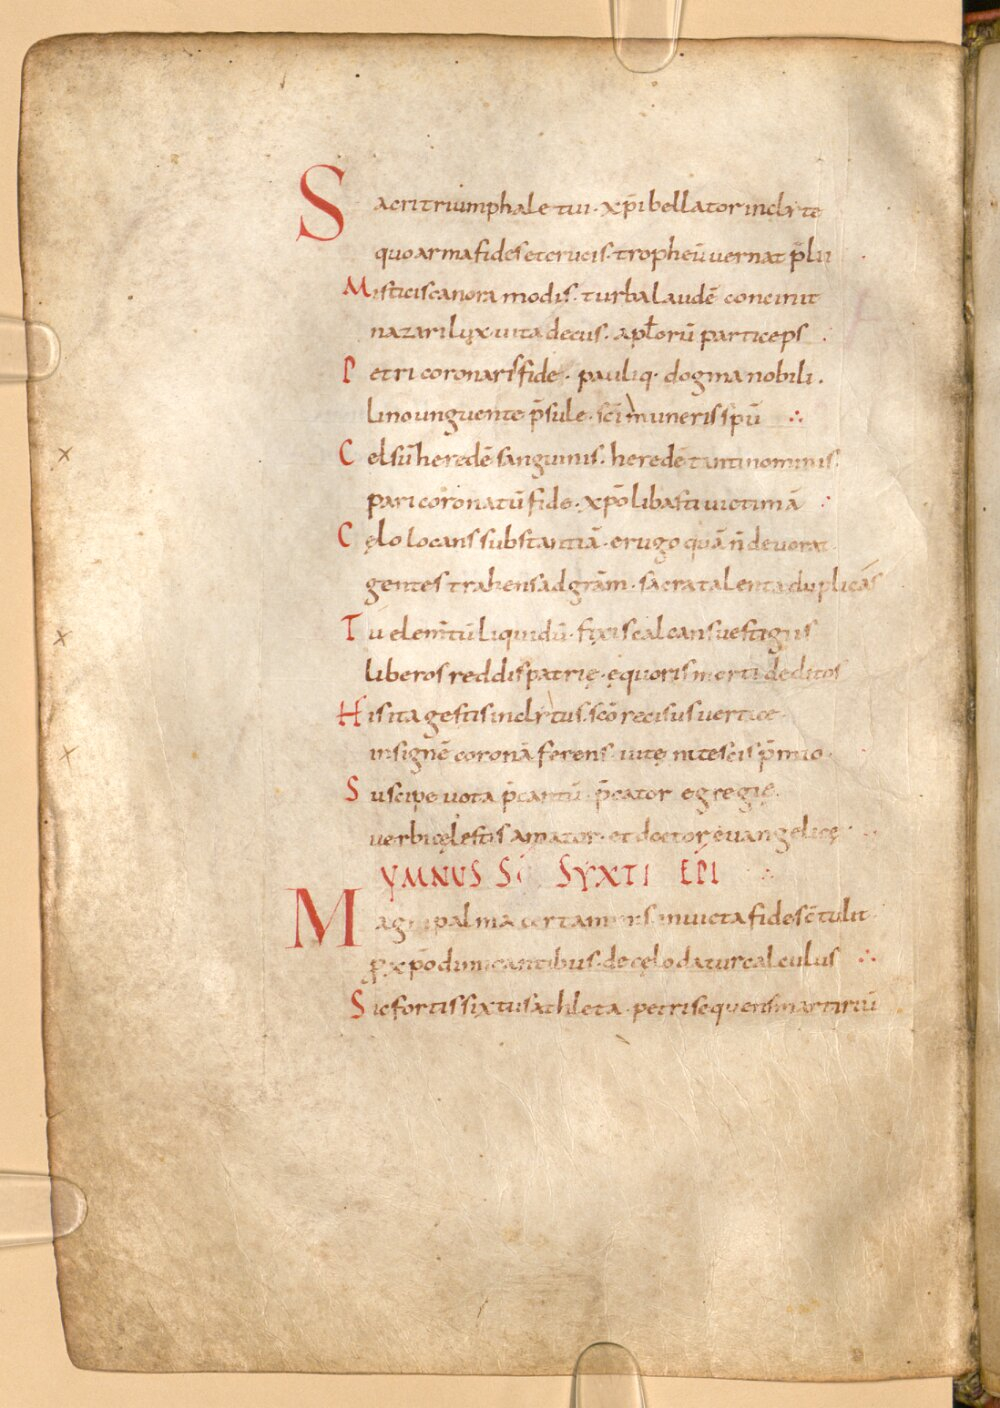 Sacri triumphale tui · xp̄i bellator inclite
quo arma fides et crucis · tropheū uernat p̄lii
Misticis canora modis · turba laudē concinit
nazarii lux uita decus · apl̄orū particeps
Petri coronaris fide · pauliq· dogma nobili .
lino unguente p̄sule · sc̄i muneris sp̄ū
Celsū heredē sanguinis · heredē tanti nominis
pari coronatū fide · xp̄o libasti uictimā
Cęlo locans substantiā · erugo quā n̄ deuorat
gentes trahens ad grām · sacra talenta duplicās
Tu elem̄tū liquidū · fixis calcans uestigiis
liberos reddis patrię · ęquoris merti deditos
His ita gestis inclitus · sc̄o recisus uertice
insignē coronā ferens · uitę nitescis p̄mio
Suscipe uota p̄cantū · p̄cator egregię
uerbi cęlestis amator · et doctor euangelicę
YMNUS SC̄I SYXTI EPI
Magni palma certaminis inuicta fides c̄tulit
p xp̄o dimicantibus · de cęlo datur calculus
Sic fortis sixtus athleta · petri sequens martiriū